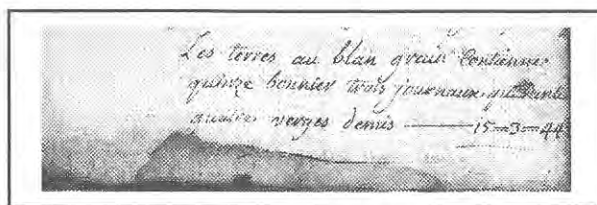 Les terres au blan grain Contienne
quinze bonnier trois journaux, quarante
quatre verges demis — 15=3=44